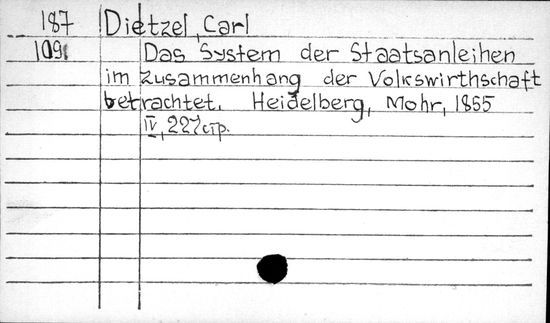 187 Dietzel, Carl
109. Das System der Staatsanleihen
im Zusammenhang der Volkswirthschaft
betrachtet. Heidelberg, Mohr, 1855
IV, 227 стр.